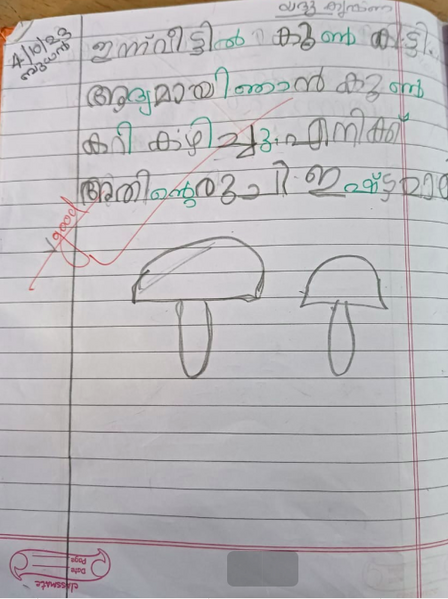 4/10/23
ബുധൻ
ഇന്ന് വീട്ടിൽ കൂൺ കിട്ടി.
ആദ്യമായി ഞാൻ കൂൺ
കറി കഴിച്ചു. എനിക്ക്
അതിൻ്റെ രുചി ഇഷ്ടമായി
good
classmate
Date
Page